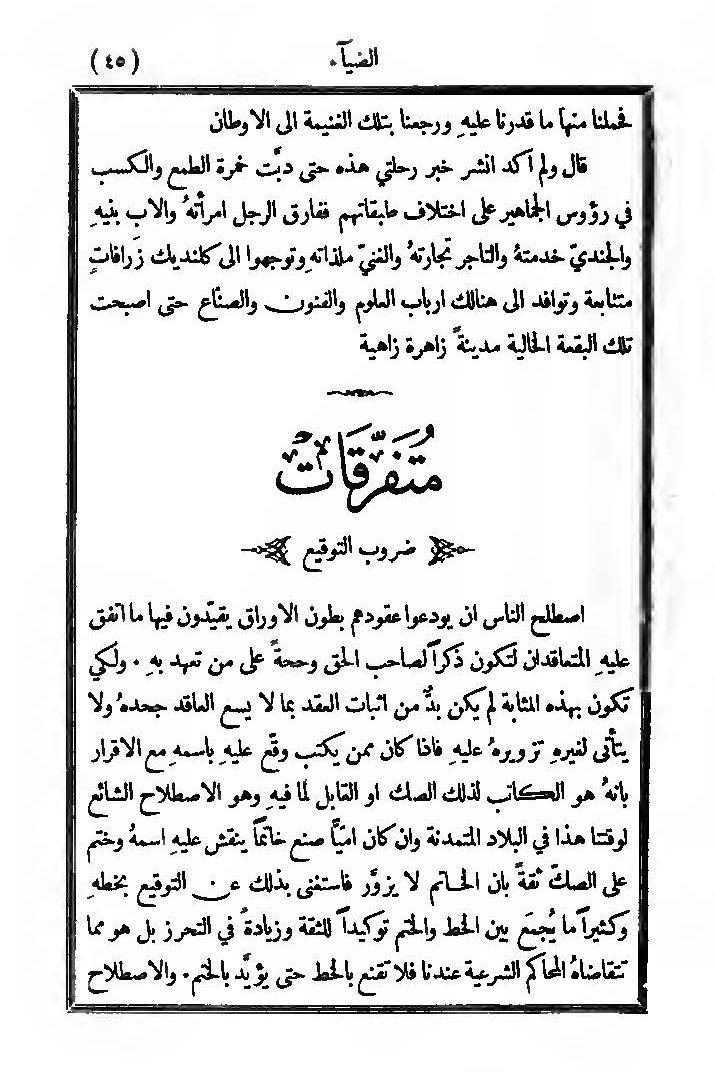 الضيآء
(٤٥)
فحملنا منها ما قدرنا عليهِ ورجعنا بتلك الغنيمة الى الاوطان
قال ولم اكد انشر خبر رحلتي هذه حتى دبَّت خمرة الطمع والكسب
في رؤوس الجماهير على اختلاف طبقاتهم ففارق الرجل امرأتهُ والاب بنيهِ
والجنديّ خدمتهُ والتاجر تجارتهُ والغنيّ ملذاتهِ وتوجهوا الى كلنديك زَرافاتٍ
متتابعة وتوافد الى هنالك ارباب العلوم والفنون والصنّاع حتى اصبحت
تلك البقعة الخالية مدينةً زاهرة زاهية
مُتَفَرِّقَات
ضروب التوقيع
اصطلح الناس ان يودعوا عقودهم بطون الاوراق يقيّدون فيها ما اتفق
عليهِ المتعاقدان لتكون ذكراً لصاحب الحق وحجةً على من تعهد بهِ . ولكي
تكون بهذه المثابة لم يكن بدٌّ من اثبات العقد بما لا يسع العاقد جحدهُ ولا
يتأتى لغيرهِ تزويرهُ عليهِ فاذا كان ممن يكتب وقّع عليهِ باسمهِ مع الاقرار
بانهُ هو الكاتب لذلك الصك او القابل لما فيهِ وهو الاصطلاح الشائع
لوقتنا هذا في البلاد المتمدنة وان كان امّيّاً صنع خاتماً ينقش عليهِ اسمهُ وختم
على الصكّ ثقةً بان الخاتم لا يزوَّر فاستغنى بذلك عن التوقيع بخطهِ
وكثيراً ما يُجمَع بين الخط والختم توكيداً للثقة وزيادةً في التحرز بل هو مما
تتقاضاهُ المحاكم الشرعية عندنا فلا تقنع بالخط حتى يؤيَّد بالختم . والاصطلاح